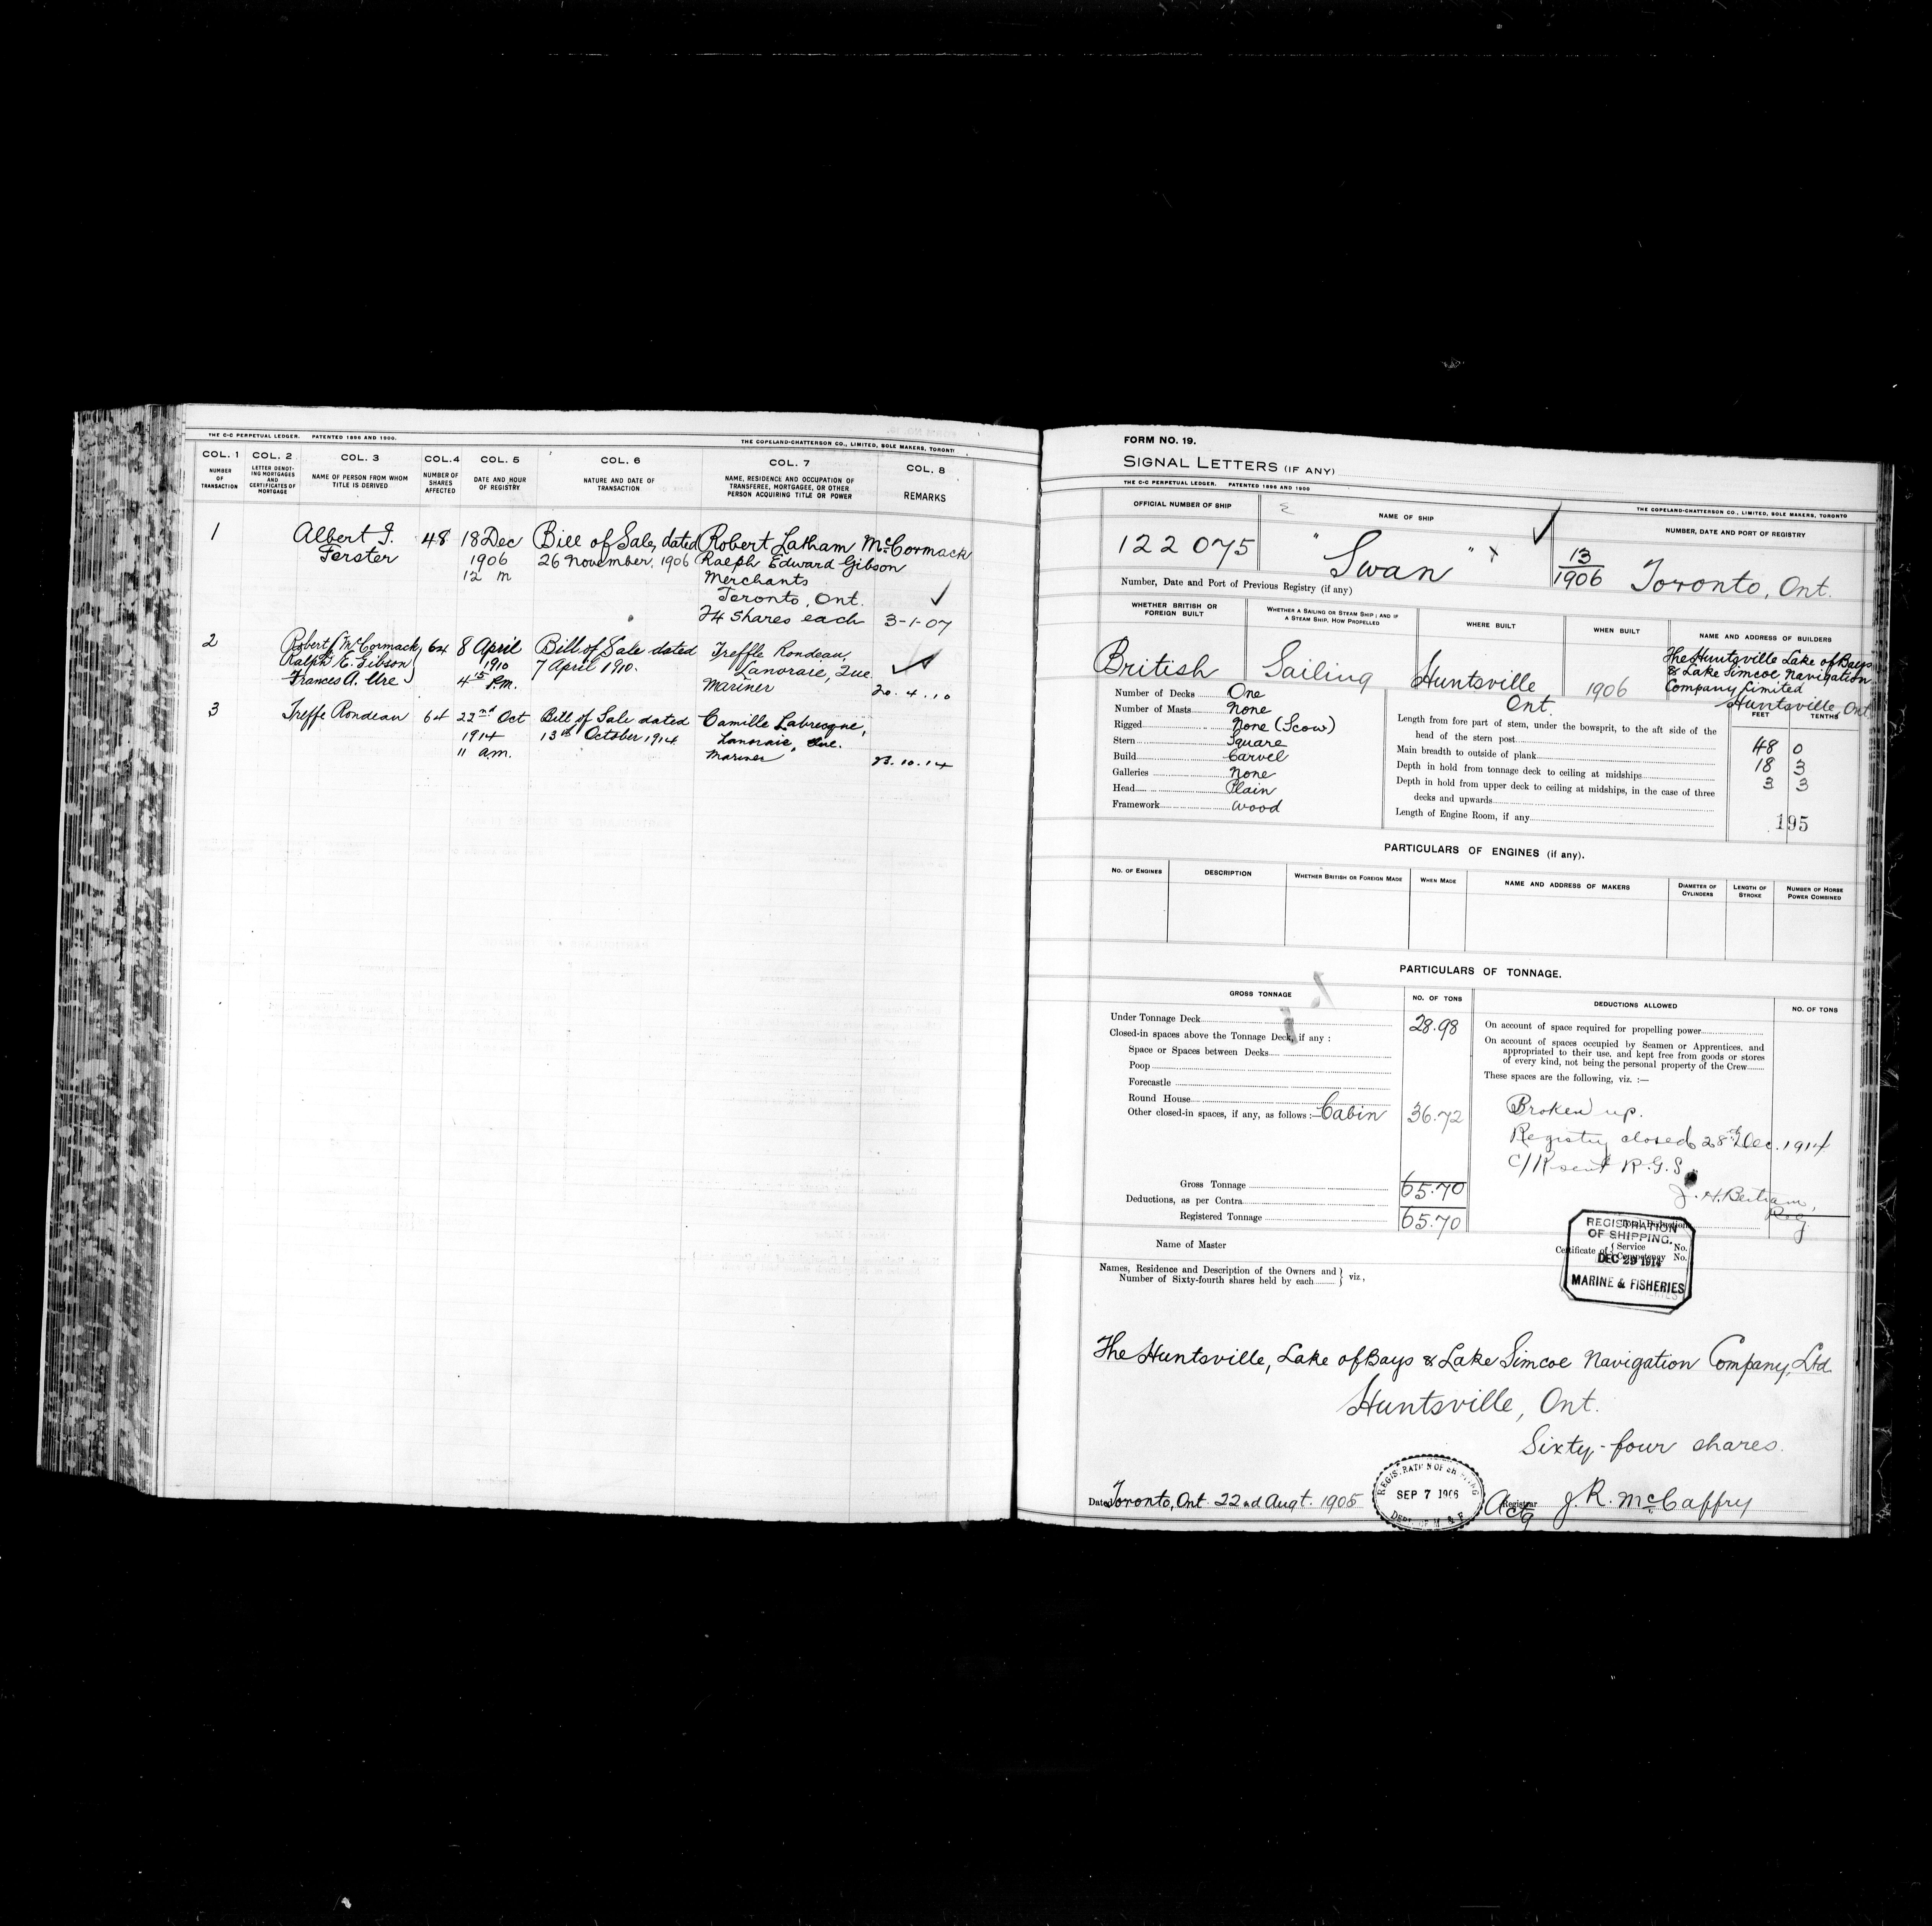 THE C-C PERPETUAL LEDGER. PATENTED 1896 AND 1900. THE COPELAND-CHATTERSON CO., LIMITED, SOLE MAKERS, TORONTO
COL. 1 COL. 2 COL. 3 COL. 4 COL. 5 COL. 6 COL. 7 COL. 8
NUMBER OF TRANSACTION
LETTER DENOTING MORTGAGES AND CERTIFICATES OF MORTGAGE
NAME OF PERSON FROM WHOM TITLE IS DERIVED
NUMBER OF SHARES AFFECTED
DATE AND HOUR OF REGISTRY
NATURE AND DATE OF TRANSACTION
NAME, RESIDENCE AND OCCUPATION OF TRANSFEREE, MORTGAGEE, OR OTHER PERSON ACQUIRING TITLE OR POWER
REMARKS
1 Albert J. 48 18 Dec Bill of Sale, dated Robert Latham McCormack
Ferster 1906 26 November, 1906 Ralph Edward Gibson
12 m Merchants
Toronto, Ont.
24 Shares each 3-1-07
2 Robert L McCormack 64 8 April Bill of Sale dated Treffle Rondeau,
Ralph E. Gibson 1910 7 April 1910. Lanoraie, Que
Frances A. Ure 4 15 P.m. Mariner 20.4.10
3 Treffe Rondeau 64 22nd Oct Bill of Sale dated Camille Labrecque,
1914 13th October 1914 Lanoraie, Que.
11 a.m. Mariner 23.10.14
FORM NO. 19.
SIGNAL LETTERS (IF ANY)
THE C-C PERPETUAL LEDGER. PATENTED 1896 AND 1900 THE COPELAND-CHATTERSON CO., LIMITED, SOLE MAKERS, TORONTO
OFFICIAL NUMBER OF SHIP NAME OF SHIP NUMBER, DATE AND PORT OF REGISTRY
122075 "Swan" 13/1906 Toronto, Ont.
Number, Date and Port of Previous Registry (if any)
WHETHER BRITISH OR FOREIGN BUILT
WHETHER A SAILING OR STEAM SHIP; AND IF A STEAM SHIP, HOW PROPELLED
WHERE BUILT
WHEN BUILT
NAME AND ADDRESS OF BUILDERS
British Sailing Huntsville Ont. 1906
The Huntsville Lake of Bays
& Lake Simcoe Navigation
Company Limited
Huntsville, Ont
Number of Decks One
Number of Masts None
Rigged None (Scow)
Stern Square
Build Carvel
Galleries None
Head Plain
Framework wood
FEET TENTHS
Length from fore part of stem, under the bowsprit, to the aft side of the
head of the stern post 48 0
Main breadth to outside of plank 18 3
Depth in hold from tonnage deck to ceiling at midships 3 3
Depth in hold from upper deck to ceiling at midships, in the case of three
decks and upwards
Length of Engine Room, if any
195
PARTICULARS OF ENGINES (if any).
NO. OF ENGINES DESCRIPTION WHETHER BRITISH OR FOREIGN MADE WHEN MADE NAME AND ADDRESS OF MAKERS DIAMETER OF CYLINDERS LENGTH OF STROKE NUMBER OF HORSE POWER COMBINED
PARTICULARS OF TONNAGE.
GROSS TONNAGE NO. OF TONS DEDUCTIONS ALLOWED NO. OF TONS
Under Tonnage Deck 28.98
Closed-in spaces above the Tonnage Deck, if any :
Space or Spaces between Decks
Poop
Forecastle
Round House
Other closed-in spaces, if any, as follows :— Cabin 36.72
Gross Tonnage 65.70
Deductions, as per Contra
Registered Tonnage 65.70
On account of space required for propelling power
On account of spaces occupied by Seamen or Apprentices, and
appropriated to their use, and kept free from goods or stores
of every kind, not being the personal property of the Crew
These spaces are the following, viz. :—
Broken up.
Registry closed 28th Dec. 1914
C/R sent R.G.S.
J. H. Bertram,
Reg
Name of Master
Certificate of { Service No.
Competency No.
REGISTRATION
OF SHIPPING.
DEC 29 1914
MARINE & FISHERIES
Names, Residence and Description of the Owners and
Number of Sixty-fourth shares held by each } viz,
The Huntsville, Lake of Bays & Lake Simcoe Navigation Company, Ltd.
Huntsville, Ont.
Sixty-four shares.
Dated Toronto, Ont. 22nd Augt. 1906 Actg Registrar J. R. McCaffry
REGISTRATION OF SHIPPING
SEP 7 1906
DEPT. OF M & F